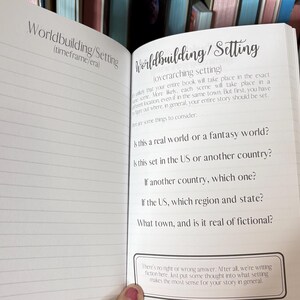 Worldbuilding/Setting
(timeframe/era)
Worldbuilding/Setting
(overarching setting)
that your entire book will take place in the exact
same scene. More likely, each scene will take place in a
different location, even if in the same town. But first, you have
to figure out where, in general, your entire story should be set.
are some things to consider:
Is this a real world or a fantasy world?
Is this set in the US or another country?
If another country, which one?
If the US, which region and state?
What town, and is it real of fictional?
There's no right or wrong answer. After all, we're writing
fiction here. Just put some thought into what setting
makes the most sense for your story in general.